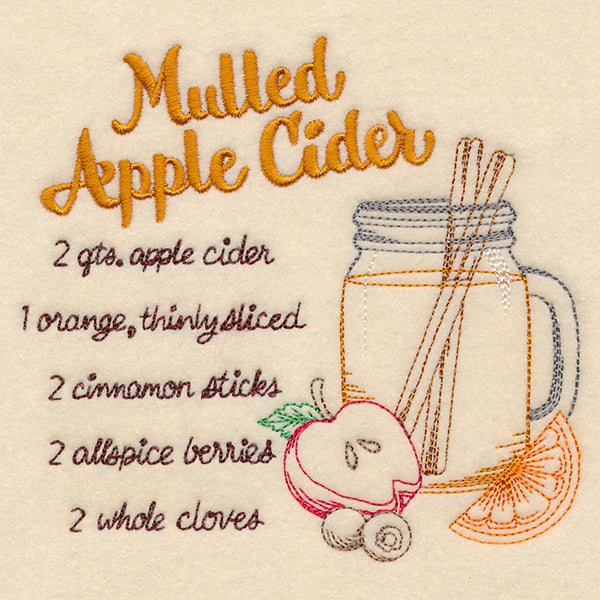 Mulled
Apple Cider
2 qts. apple cider
1 orange, thinly sliced
2 cinnamon sticks
2 allspice berries
2 whole cloves